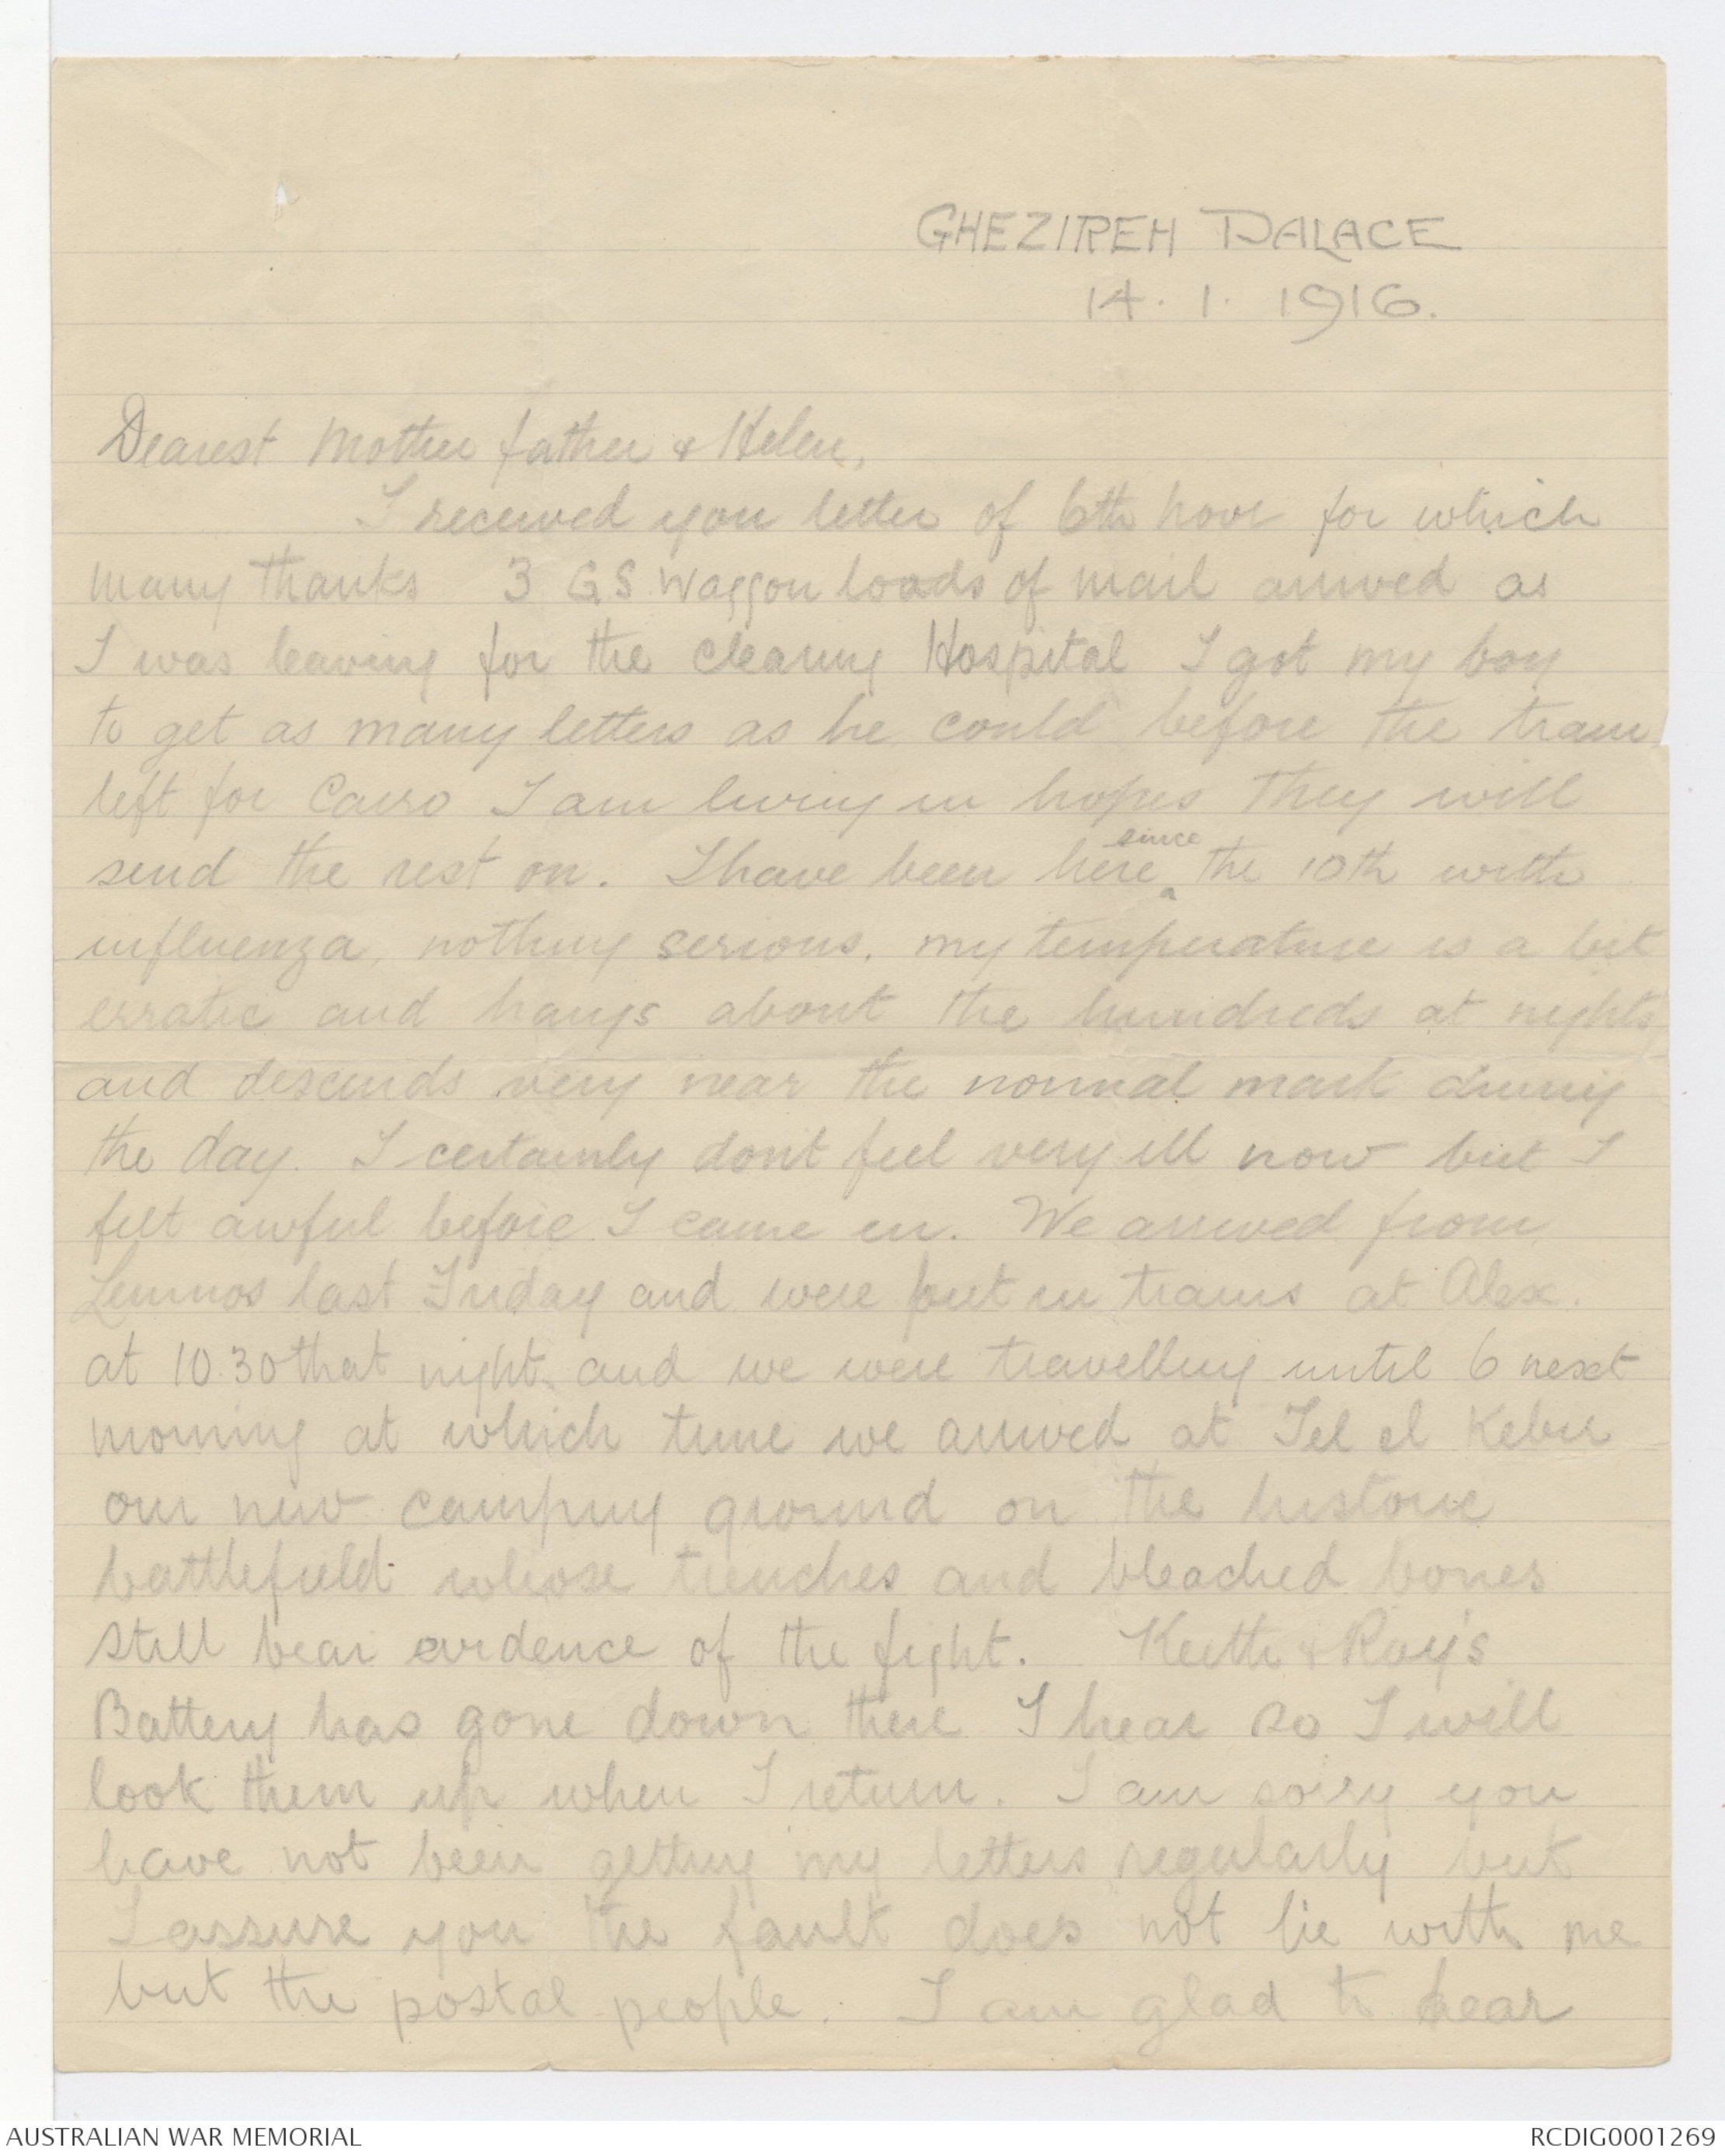 GHEZIREH PALACE
14. 1. 1916.
Dearest Mother father & Helen,
I received you letter of 6th Novr for which
many thanks 3 GS Waggon loads of mail arrived as
I was leaving for the clearing Hospital I got my boy
to get as many letters as he could before the train
left for Cairo I am living in hopes they will
since
send the rest on. I have been here the 10th with
influenza, nothing serious. my temperature is a bit
erratic and hangs about the hundreds at nights
and descends very near the normal mark during
the day. I certainly dont feel very ill now but I
felt awful before I came in. We arrived from
Lemnos last Friday and were put in trains at Alex.
at 10.30 that night and we were travelling until 6 next
morning at which time we arrived at Tel el Kebir
our new camping ground on the historic
battlefield whose trenches and bleached bones
still bear evidence of the fight. Keith & Roy's
Battery has gone down there I hear so I will
look them up when I return. I am sorry you
have not been getting my letters regularly but
I assure you the fault does not lie with me
but the postal people. I am glad to hear
AUSTRALIAN WAR MEMORIAL
RCDIG0001269